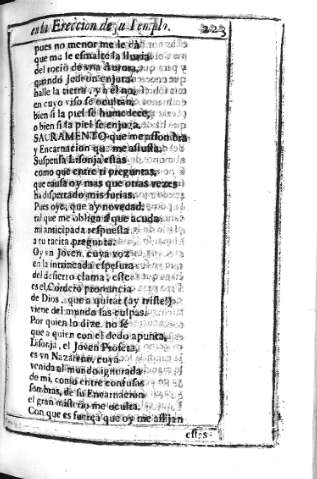 en la Ereccion de su Templo. 223
pues no menor me le dà
que ma le esmalte la lluvia
del rocio de vna Aurora,
quando Jedeon enjuta
halle la tierra, y à el no,
en cuyo viso se ocultan,
bien si la piel se humedece,
o bien si la piel se enjuga,
SACRAMENTO que me assombra
y Encarnacion que me assusta.
Suspensa Lisonja estàs
como que entre ti preguntas,
que causa oy mas que otras vezes
ha dispertado mis furias.
Pues oye, que ay novedad,
tal que me obliga à que acuda
mi anticipada respuesta
a tu tacita pregunta.
Oy vn Joven, cuya voz
en la intrincada espesura
del desierto clama, este
es el Cordero pronuncia
de Dios, que a quitar (ay triste!)
viene del mundo las culpas.
Por quien lo dize, no sè
que a quien con el dedo apunta,
Lisonja, el Joven Profeta,
es vn Nazareno, cuya
venida al mundo ignorada
de mi, como entre confusas
sombras, de su Encarnacion
el gran misterio me oculta.
Con que es fuerça que oy me aflijan
es-